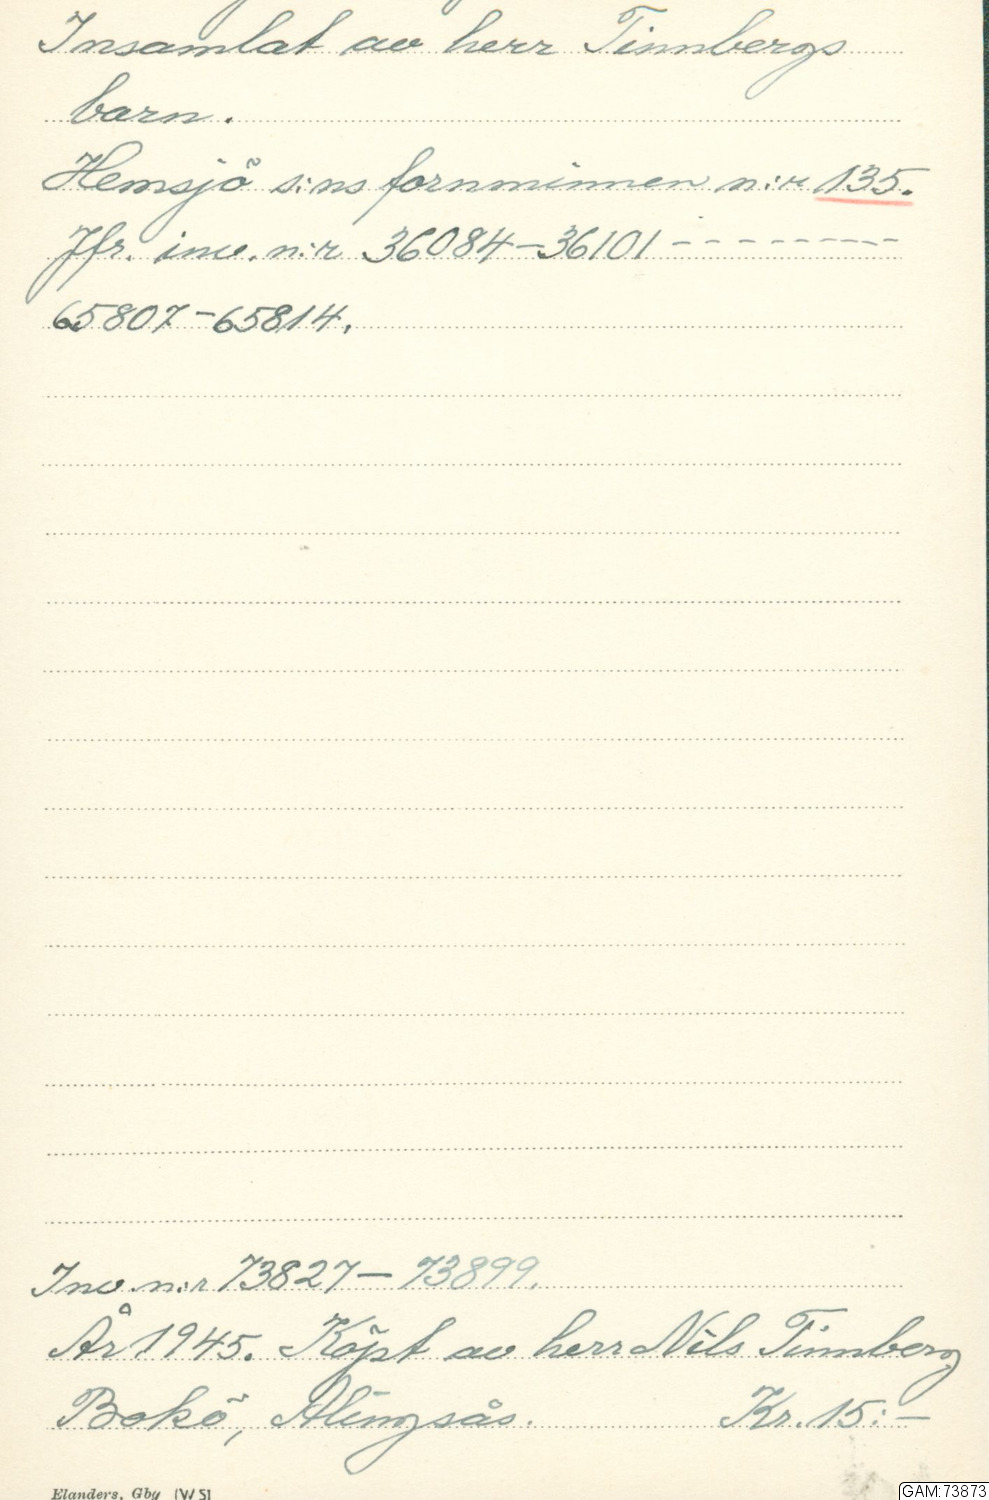 Insamlat av herr Tinnbergs
barn.
Hemsjö s:ns fornminnen n:r 135.
Jfr. inv. n:r 36084–36101 - - - - - - - - -
65807–65814.
Inv. n:r 73827– 73899.
År 1945. Köpt av herr Nils Tinnberg
Bokö, Alingsås. Kr. 15:–
Elanders, Gby (W S)
GAM:73873